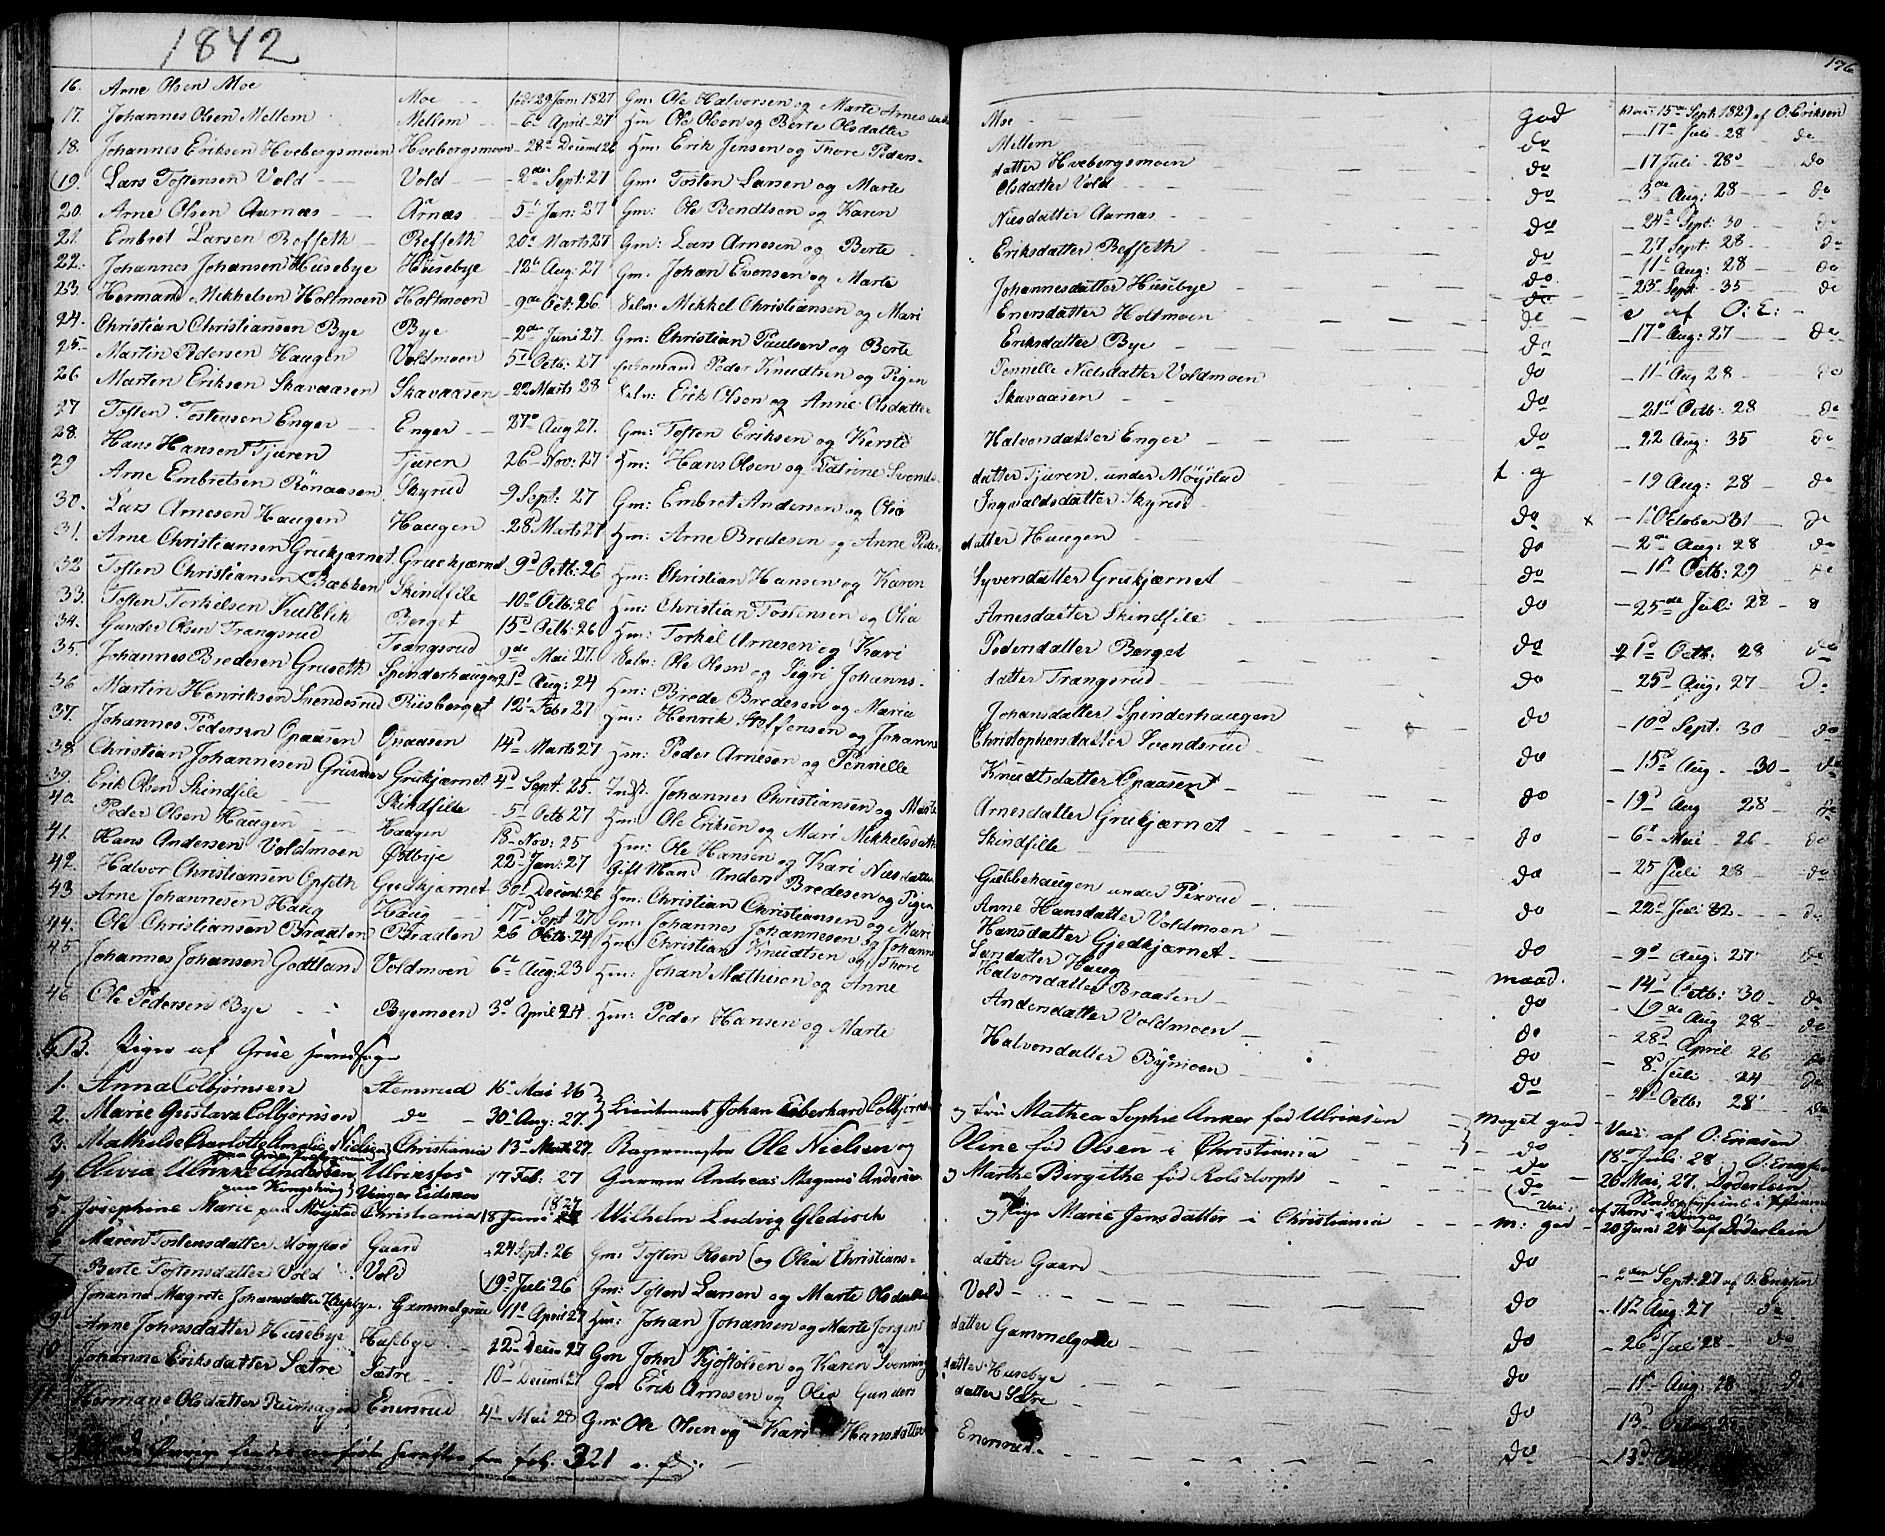 1842
176
16. Arne Olsen Moe Moe født 29 Jan: 1827 Gm: Ole Halvorsen og Marte Arnesdatter Moe god 15de Sept. 1829 af O. Eriksen
17. Johannes Olsen Mellem Mellem 6 April 27 Hm: Ole Olsen og Berte Olsdatter Mellem do 17 Juli 28 do
18. Johannes Eriksen Hvebergsmoen Hvebergsmoen 28 Decemb 26 Hm: Erik Jensen og Thore Peders- datter Hvebergsmoen do 17 Juli 28 do
19. Lars Tostensen Vold Vold 2den Sept: 27 Gm: Tosten Larsen og Marte Olsdatter Vold do 3de Aug: 28 do
20. Arne Olsen Aarnæs Årnæs 5 Jan: 27 Gm: Ole Bendtsen og Karen Nilsdatter Aarnæs do 24 Sept: 30 do
21. Embret Larsen Refseth Refseth 20 Marts 27 Gm: Lars Arnesen og Berte Eriksdatter Refseth do 27 Sept. 28 do
22. Johannes Johansen Husebye Husebye 12 Aug: 27 Gm: Johan Evensen og Marte Johannesdatter Husebye do 11 Aug: 28 do
23. Hermand Mikkelsen Holtmoen Holtmoen 9de Oct: 26 Selv: Mikkel Christiansen og Mari Enersdatter Holtmoen do 23 Sept 35 do
24. Christian Christiansen Bye Bye 2den Juni 27. Gm: Christian Paulsen og Berte Eriksdatter Bye do af O: E:
25. Martin Pedersen Haugen Voldmoen 5 Octb: 27 Peder Knudtsen og Pigen Pennelle Nielsdatter Voldmoen do 17 Aug: 27 do
26. Marten Eriksen Skavaasen Skavaasen 22 Marts 28 Selv: Erik Olsen og Anne Olsdatter Skavaasen do 11 Aug 28 do
27. Tosten Tostensen Enger Enger 27 Aug 27. Gm: Tosten Eriksen og Kersti Halvorsdatter Enger do 21 Octb: 28 do
28. Hans Hansen Tjuren Tjuren 26 Nov: 27 Hm: Hans Olsen og Catrine Svends- datter Tjuren under Möystad do 22 Aug: 35 do
29. Arne Embretsen Rönaasen Skyrud 9 Sept: 27 Gm: Embret Andersen og Olia Ingvaldsdatter Skyrud t. g 19 Aug: 28 do
30. Lars Arnesen Haugen Haugen 28 Marts 27 Hm: Arne Bredesen og Anne Peders- datter Haugen do x 1 October 31 do
31. Arne Christiansen Gruekjærnet Gruekjærnet 9 Octb: 26 Hm: Christian Hansen og Karen Syversdatter Grukjærnet do 2den Aug: 28 do
32. Tosten Christiansen Bækken Skindfile 10 Octb: 26 Hm: Christian Tostensen og Olia Arnesdatter Skindfile do 11 Octb: 29 do
33. Tosten Torkelsen Kulblik Berget 15 Octb: 26 Hm: Torkel Arnesen og Kari Pedersdatter Berget do 25de Juli 28
34. Gunder Olsen Trangsrud Trangsrud 9de Mai 27. Selv: Ole Olsen og Sigri Johanns- datter Trangsrud do 21 Octb: 28 do
35. Johannes Bredesen Gruseth Spenderhaugen 21 Aug: 24 Hm: Brede Bredesen og Maria Johansdatter Spinderhaugen do 25 Aug: 27 do
36. Martin Henriksen Svendsrud Riisberget 12 Febr 27 Hm: Henrik Steffensen og Johanne Christophersdatter Svendsrud do 10 Sept: 30 do
37. Johannes Pedersen Opaasen Opaasen 14 Marts 27 Hm: Peder Arnesen og Pennelle Knudtsdatter Opaasen do 15 Aug 30 do
38. Christian Johannesen Grukjærnet 4 Sept: 25. Indst. Johannes Christiansen og Marte Arnesdatter Grukjærnet do 19 Aug 28 do
39. Erik Olsen Skindfile Skindfilte 5 Octb 27 Hm: Ole Eriksen og Mari Mikkelsdatter Skindfille do 6 Mai 26 do
40. Peder Olsen Haugen Haugen 18 Nov: 25 Hm: Ole Hansen og Kari Nilsdatter Gubbehaugen under Pexrud do 25 Juli 28 do
41. Hans Andersen Voldmoen Østbye 22 Jan: 27 Gift Mand Anders Bredesen og Pigen Anne Hansdatter Voldmoen do 22 Juli 32 do
42. Halvor Christiansen Opseth Gredkjærnet 30 Decemb: 26 Hm: Christian Christiansen og Mari Hansdatter Gjedkjærnet do 9 Aug: 27 do
43. Arne Johannesen Haug Haug 17 Sept 27 Gm: Johannes Johannesen og Johanne Larsdatter Haug maad. 14 Octb: 30 do
44. Ole Christiansen Braaten Braaten 26 Octb: 24 Hm: Christian Knudtsen og Thore Halvorsdatter Braaten do 19de Aug 28 do
45. Johannes Johansen Godtland Voldmoen 6 Aug: 23 Hm: Johan Mathisen og Anne Andersdatter Voldmoen do 28 April 26 do
46. Ole Pedersen Bye Byemoen 3 April 24 Hm: Peder Hansen og Marte Halvorsdatter Byemoen do 8 Juli 24 do
B. Piger af Grue
1. Anna Colbjørnsen Stemsrud 16 Mai 26 Lieutenant Johan Eiberhard Colbjørnsen og Fru Mathea Sophie Anker fød Ulriksen meget god
2. Marie Gustava Colbjørnsen do 30 Aug: 27. do Vac: af O. Eriksen
3. Mathilde Charlotte Amalie Nielsen Christiania 13 Marts 27 Bagermester Ole Nielsen og Oline fød Olsen i Christiania do 18 Juli 28 O. Eriksen
4. Olivia Ulrikke Andersen Ulriksfos 17 Feb: 27 Andreas Magnus Andersen og Marthe Birgithe fød Rolsdorph do 26 Mai, 27. Døderlein
5. Josephine Marie paa Møystad Christiania 18 Juni 1827 Wilhelm Ludvig Gleditsch og Pige Marie Jensdatter i Christiania m: god 20 Juni 24 af Døderlein
Maren Tostensdatter Møystad Gaard 24 Sept: 26 Gm: Tosten Olsen og Olia Christians- datter Gaard do 2den Sept: 27 af O: Eriksen
Berte Tostensdatter Vold Vold 19 Juli 26 Gm: Tosten Larsen og Marte Olsdatter Vold do 11 Aug: 27 do
Johanne Magrete Johansdatter Husebye Gammelgrue 11 April 27 Hm: Johan Johansen og Marte Jørgens datter Gammelgrue do 26 Juli 28 do
9. Anne Johnsdatter Husebye Husebye 22 Decmb 27 Gm John Kjøstolsen og Karen Svennings datter Husebye do 11 Aug: 28 do
10. Johanne Eriksdatter Sætre Sætre 10 Decmb 27 Gm Erik Arnesen og Olia Gunders datter Sætre do 13
11. Hermane Olsdatter Enersrud 4 Mai 28 Gm: Ole Olsen og Kari Hansdatter Enersrud do 13
Øvrige findes fol: 321